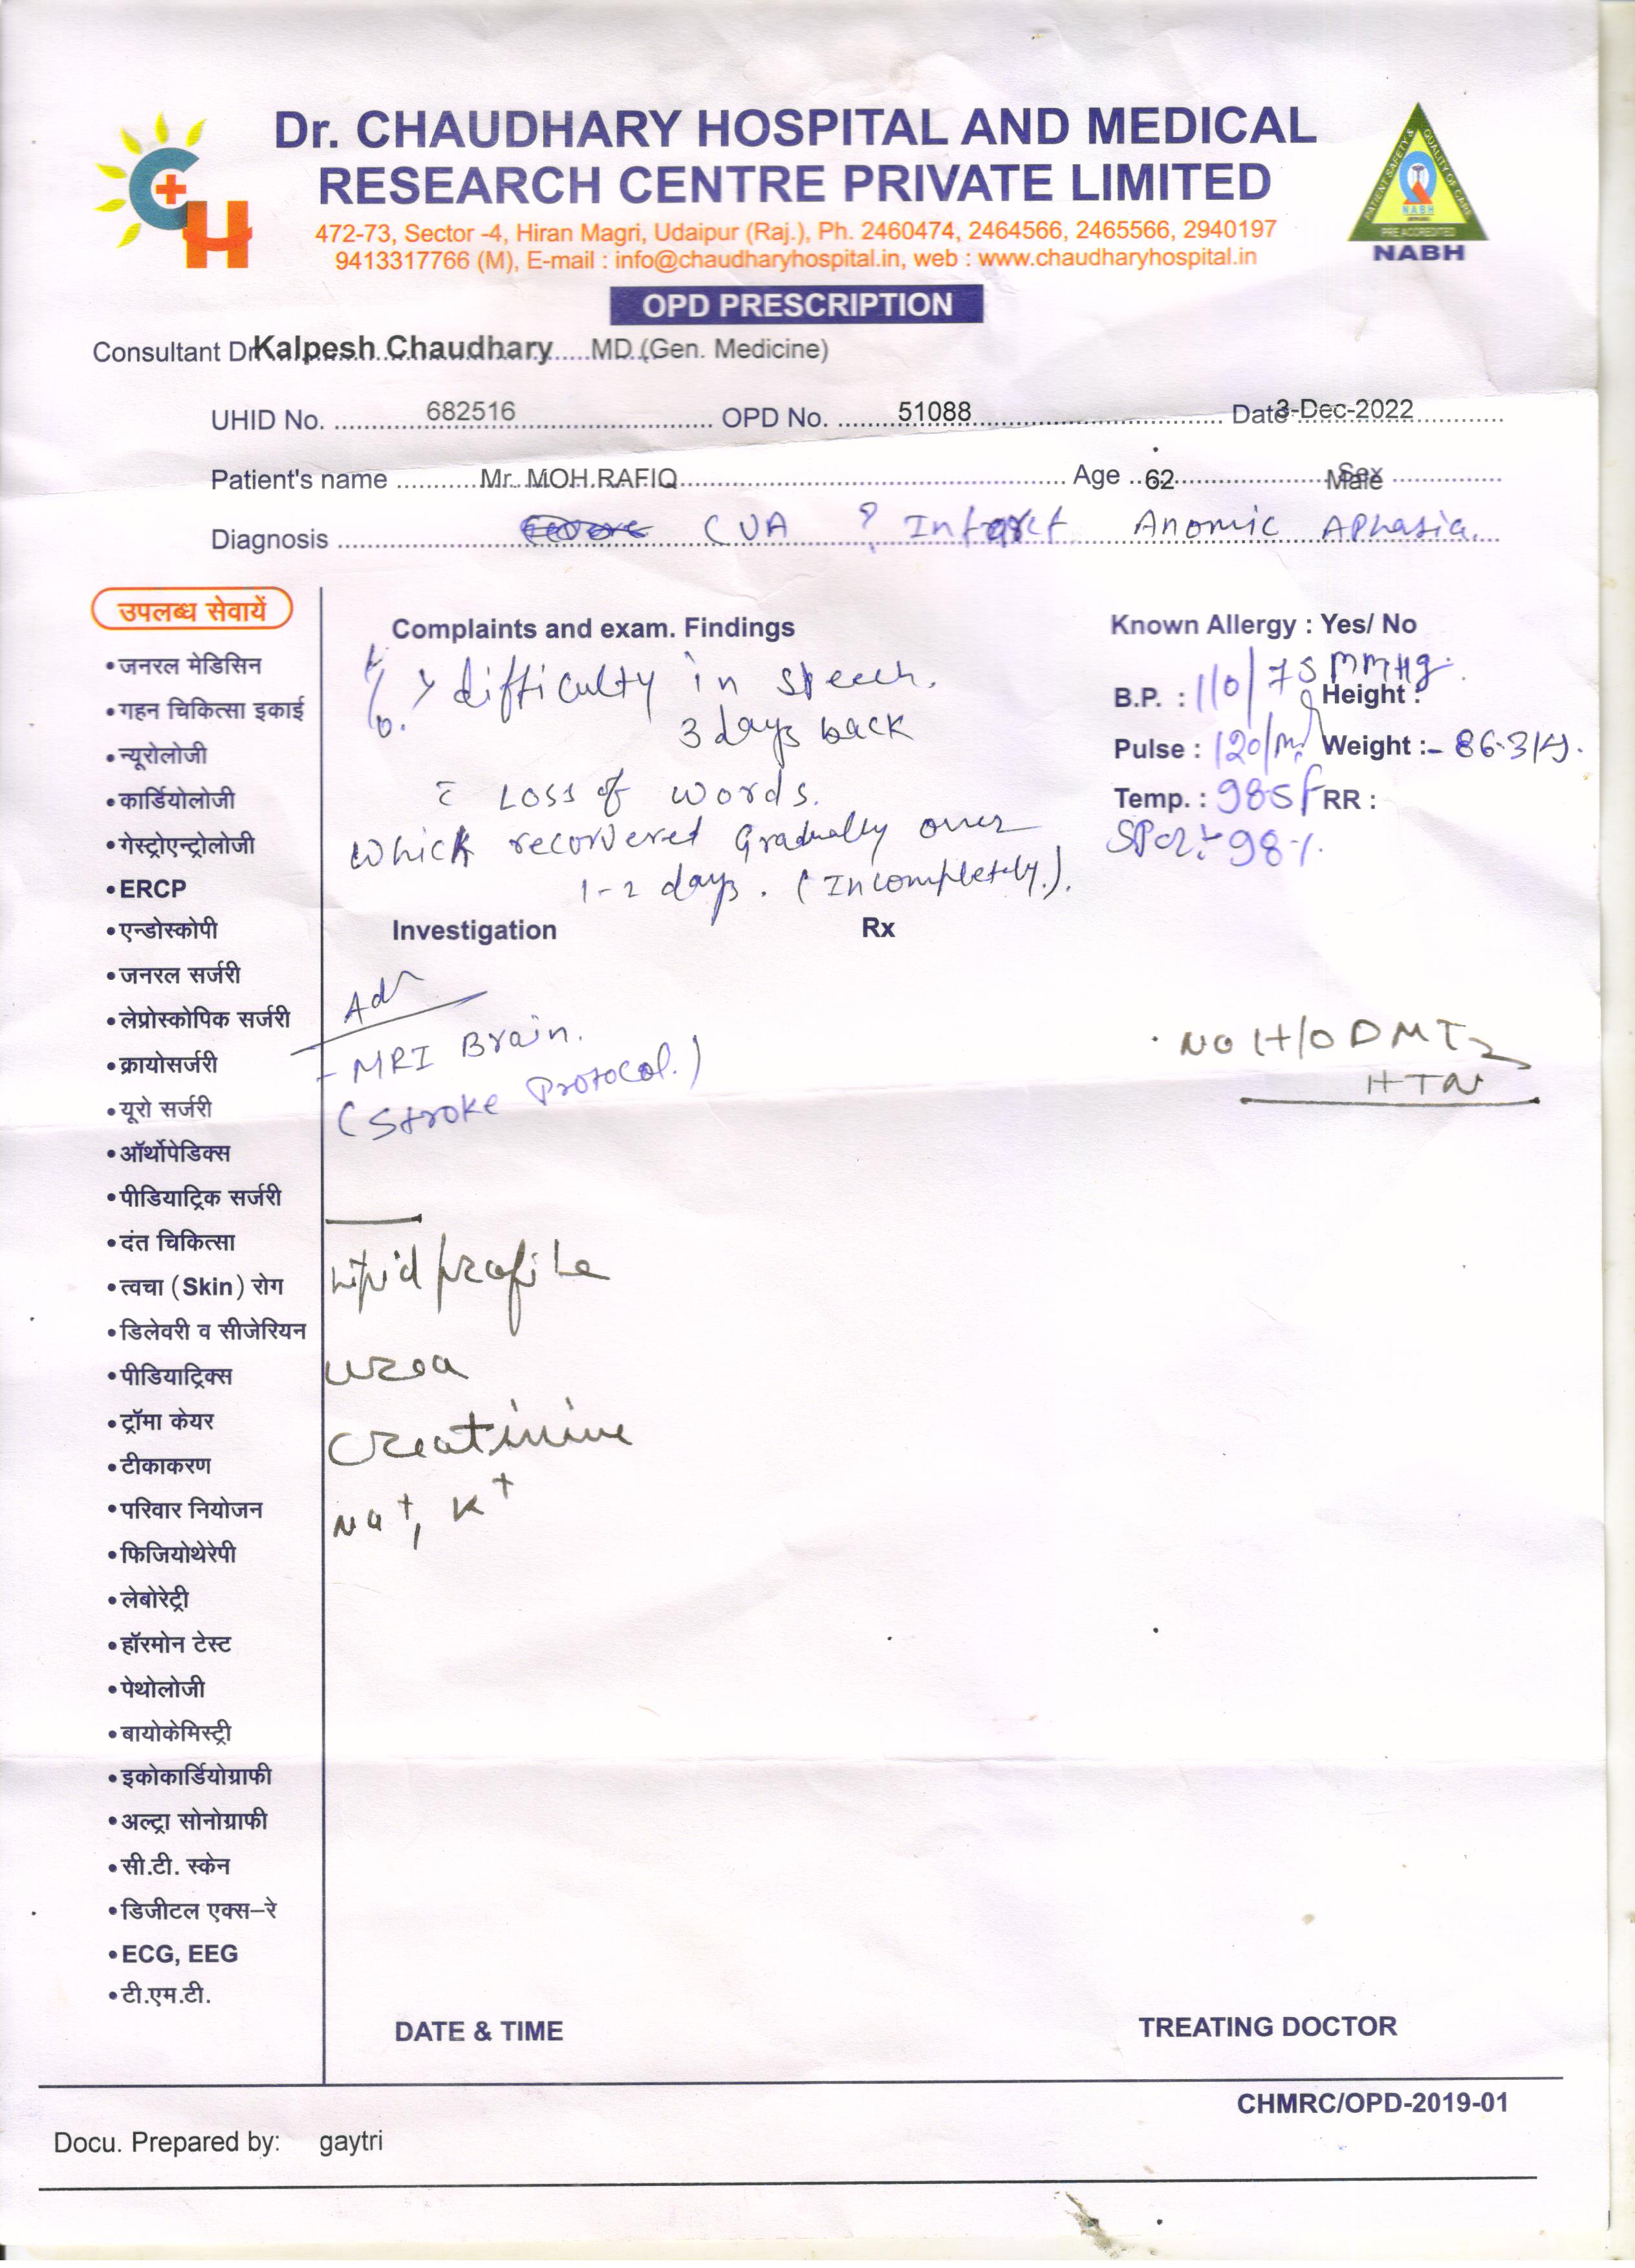 Dr. CHAUDHARY HOSPITAL AND MEDICAL
RESEARCH CENTRE PRIVATE LIMITED
472-73, Sector -4, Hiran Magri, Udaipur (Raj.), Ph. 2460474, 2464566, 2465566, 2940197
9413317766 (M), E-mail : info@chaudharyhospital.in, web : www.chaudharyhospital.in
PATIENT SAFETY & QUALITY OF CARE
NABH
PRE ACCREDITED
NABH
OPD PRESCRIPTION
Consultant Dr Kalpesh Chaudhary MD (Gen. Medicine)
UHID No. 682516 OPD No. 51088 Date 3-Dec-2022
Patient's name Mr. MOH.RAFIQ Age 62 Sex Male
Diagnosis CVA ? Infarct Anomic Aphasia.
उपलब्ध सेवायें
• जनरल मेडिसिन
• गहन चिकित्सा इकाई
• न्यूरोलोजी
• कार्डियोलोजी
• गेस्ट्रोएन्ट्रोलोजी
• ERCP
• एन्डोस्कोपी
• जनरल सर्जरी
• लेप्रोस्कोपिक सर्जरी
• क्रायोसर्जरी
• यूरो सर्जरी
• ऑर्थोपेडिक्स
• पीडियाट्रिक सर्जरी
• दंत चिकित्सा
• त्वचा (Skin) रोग
• डिलेवरी व सीजेरियन
• पीडियाट्रिक्स
• ट्रॉमा केयर
• टीकाकरण
• परिवार नियोजन
• फिजियोथेरेपी
• लेबोरेट्री
• हॉरमोन टेस्ट
• पेथोलोजी
• बायोकेमिस्ट्री
• इकोकार्डियोग्राफी
• अल्ट्रा सोनोग्राफी
• सी.टी. स्केन
• डिजीटल एक्स–रे
• ECG, EEG
• टी.एम.टी.
Complaints and exam. Findings
difficulty in speech.
3 days back
Loss of words.
which recorvered Gradually over
1-2 days. (Incompletely.).
Known Allergy : Yes/ No
B.P. : 110/75 mmHg.
Height :
Pulse : 120/m Weight :- 86.3
Temp. : 985f RR :
SPO2:- 98%
Investigation
Rx
Adv
- MRI Brain.
(Stroke Protocol.)
Lipid profile
urea
creatinine
Na+, K+
. NO H/O DMT2
HTN
DATE & TIME
TREATING DOCTOR
CHMRC/OPD-2019-01
Docu. Prepared by: gaytri